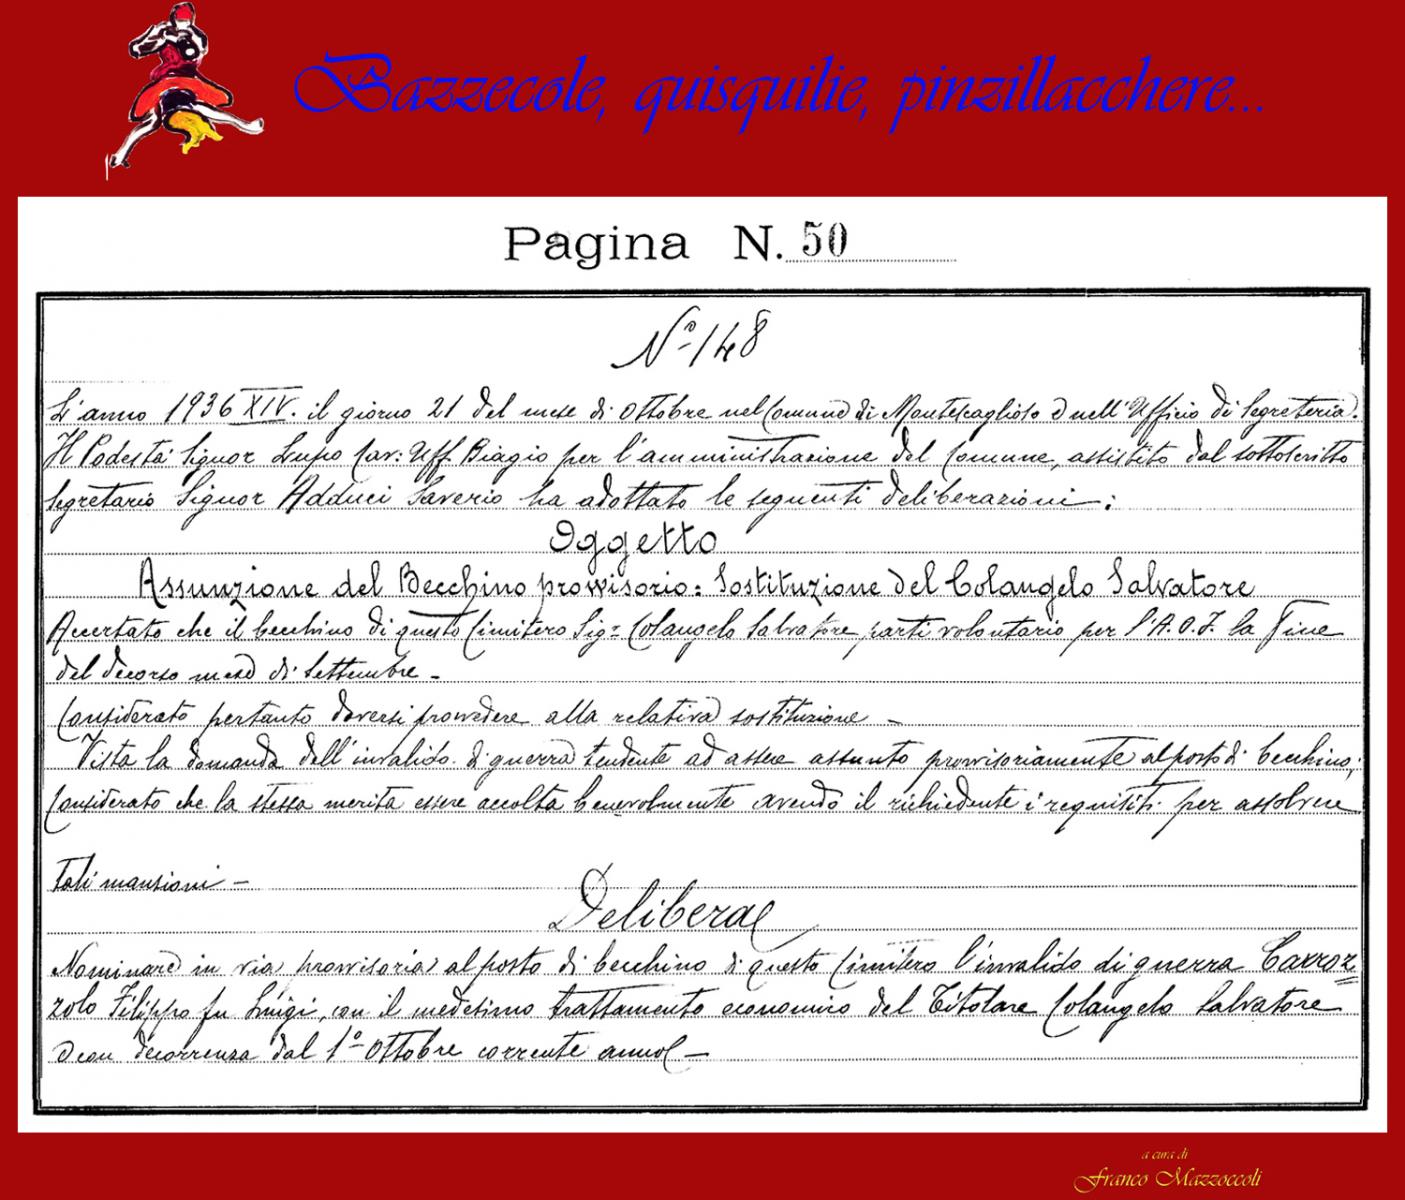 Bazzecole, quisquilie, pinzillacchere...
Pagina N. 50
N° 148
L'anno 1936 XIV. il giorno 21 del mese di Ottobre nel Comune di Montescaglioso e nell'Ufficio di Segreteria.
Il Podestà Signor Lupo Cav: Uff. Biagio per l'amministrazione del Comune, assistito dal sottoscritto
Segretario Signor Adduci Saverio ha adottato le seguenti deliberazioni:
Oggetto
Assunzione del Becchino provvisorio: Sostituzione del Colangelo Salvatore
Accertato che il becchino di questo Cimitero Sigr Colangelo Salvatore partì volontario per l'A.O.I. la fine
del decorso mese di Settembre -
Considerato pertanto doversi provvedere alla relativa sostituzione -
Vista la domanda dell'invalido di guerra tendente ad essere assunto provvisoriamente al posto di becchino;
Considerato che la stessa merita essere accolta benevolmente avendo il richiedente i requisiti per assolvere
tali mansioni -
Delibera
Nominare in via provvisoria al posto di becchino di questo Cimitero l'invalido di guerra Carroz=
zolo Filippo fu Luigi, con il medesimo trattamento economico del Titolare Colangelo Salvatore
e con decorrenza dal 1° Ottobre corrente anno -
a cura di
Franco Mazzoccoli